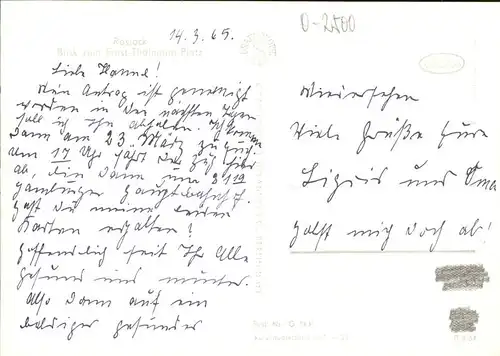 14.3.69.
0-2500
Rostock
Blick zum Ernst-Thälmann-Platz
Liebe Hanne!
Mein Antrag ist genemigt
worden in den nächsten Tagen
soll ich ihn abholen. Ich komme
dann am 23. März zu Euch.
Um 17 Uhr fährt der Zug hier
ab, bin dann zum 21 19
Hauptbahnhof.
Hast Du meine beiden
Karten erhalten?
Hoffendlich seit Ihr Alle
gesund und munter.
Also dann auf ein
baldiges gesundes
Wiedersehen
Viele Grüße Eure
und Oma
Holst mich doch ab!